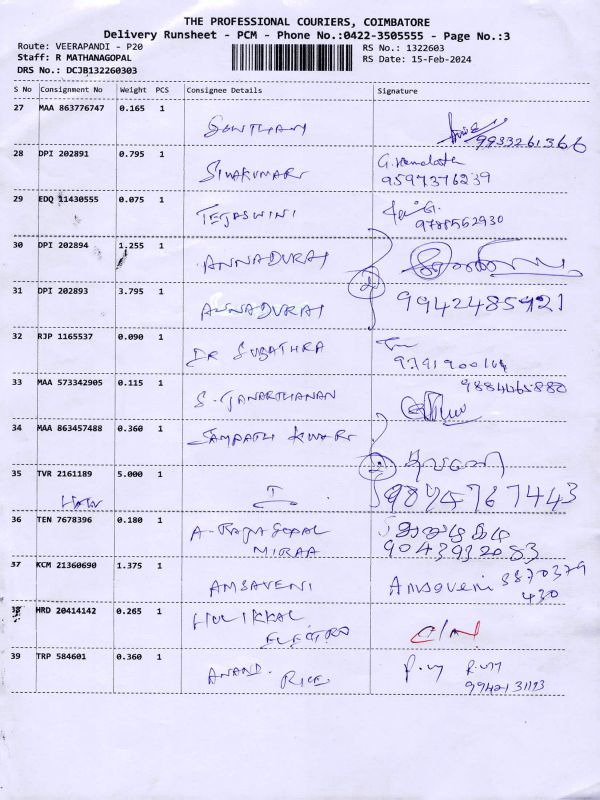 THE PROFESSIONAL COURIERS, COIMBATORE
Delivery Runsheet - PCM - Phone No.:0422-3505555 - Page No.:3
Route: VEERAPANDI - P20
RS No.: 1322603
Staff: R MATHANAGOPAL
RS Date: 15-Feb-2024
DRS No.: DCJB132260303
S No Consignment No Weight PCS Consignee Details Signature
27 MAA 863776747 0.165 1
9933261366
28 DPI 202891 0.795 1 SIVAKUMAR
9597376239
29 EDQ 11430555 0.075 1 TEJASWINI
9788562930
30 DPI 202894 1.255 1 ANNADURAI
31 DPI 202893 3.795 1 ANNADURAI 9942485921
32 RJP 1165537 0.090 1 DR SUBATHRA
33 MAA 573342905 0.115 1 S. JANARTHANAN
9884665880
34 MAA 863457488 0.360 1 SAMPATH KUMAR
35 TVR 2161189 5.000 1 9875767443
36 TEN 7678396 0.180 1 A. RAJAGOPAL
MIRAA 9043932083
37 KCM 21360690 1.375 1 AMSAVENI Amsaveni 8870379
430
38 HRD 20414142 0.265 1 HULIKKAL
ELECTRO
39 TRP 584601 0.360 1 ANAND RICE